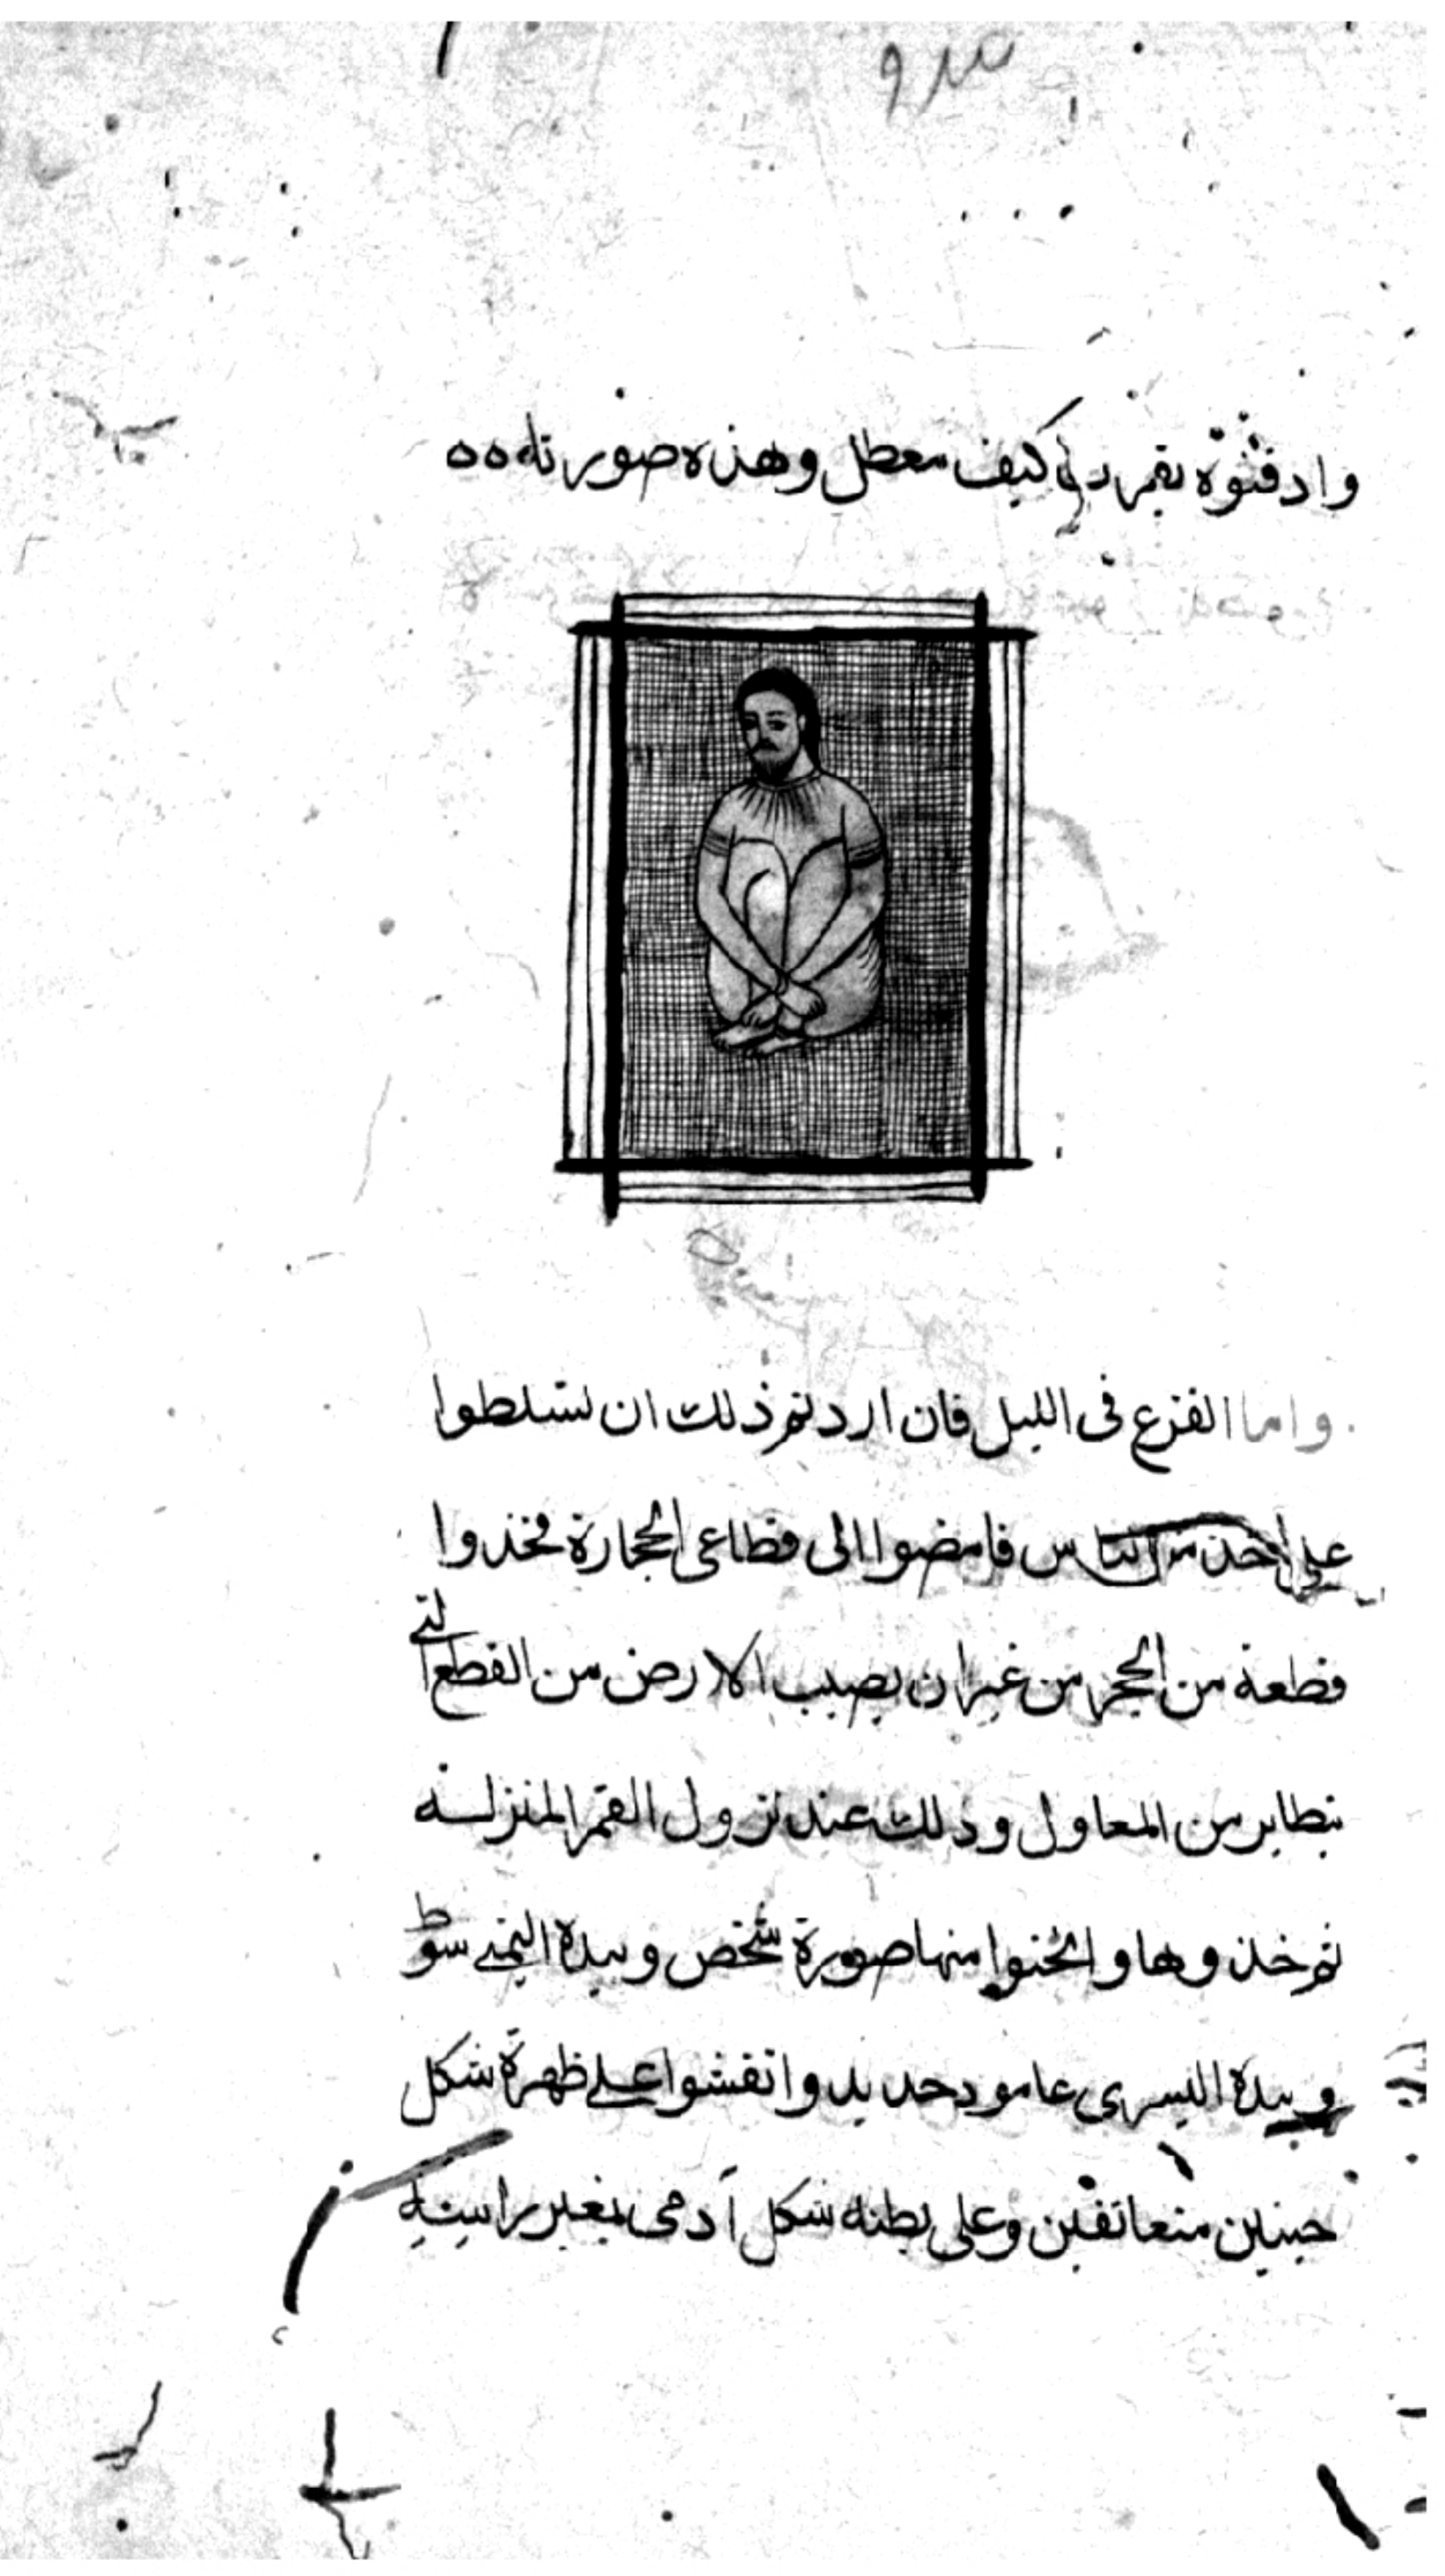 وادفنوه بقمر كنيف معطل وهذه صورته ه ه
واما الفزع في الليل فان اردتم ذلك ان تسلطوا
على احد من الناس فامضوا الى قطاعى الحجارة فخذوا
قطعة من الحجر من غير ان يصيب الارض من القطع التى
يتطاير من المعاول وذلك عند نزول القمر المنزلة
ثم خذوها وانحتوا منها صورة شخص وبيده اليمنى سوط
وبيده اليسرى عامود حديد وانقشوا على ظهره شكل
متعانقين وعلى بطنه شكل آدمى بغير راس